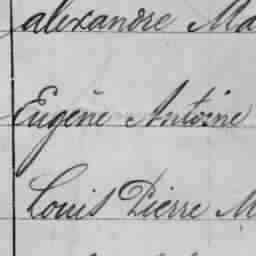 alexandre Ma
Eugène Antoine
Louis Pierre M